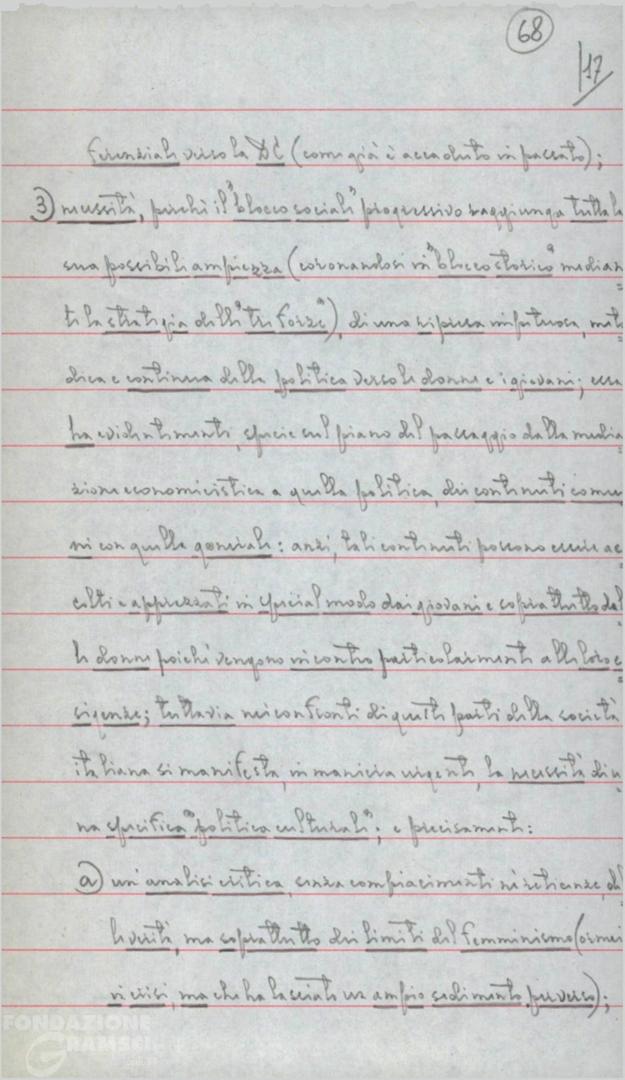 68
17
ferenziale verso la DC (come già è accaduto in passato);
3) necessità, perché il "blocco sociale" progressivo raggiunga tutta la
sua possibile ampiezza (coronandosi in "blocco storico" median=
te la strategia delle "tre forze"), di una ripresa impetuosa, meto
dica e continua della politica verso le donne e i giovani; essa
ha evidentemente, specie sul piano del passaggio dalla media=
zione economicistica a quella politica, dei contenuti comu
ni con quella generale: anzi, tali contenuti possono essere ac=
colti e apprezzati in special modo dai giovani e soprattutto dal
le donne poiché vengono incontro particolarmente alle loro e
sigenze; tuttavia nei confronti di queste parti della società
italiana si manifesta, in maniera urgente, la necessità di u
na specifica "politica culturale"; e precisamente:
a) un'analisi critica, senza compiacimenti né reticenze, del
le verità, ma soprattutto dei limiti del femminismo (ormai
in crisi, ma che ha lasciato un ampio sedimento perverso);
FONDAZIONE
GRAMSCI